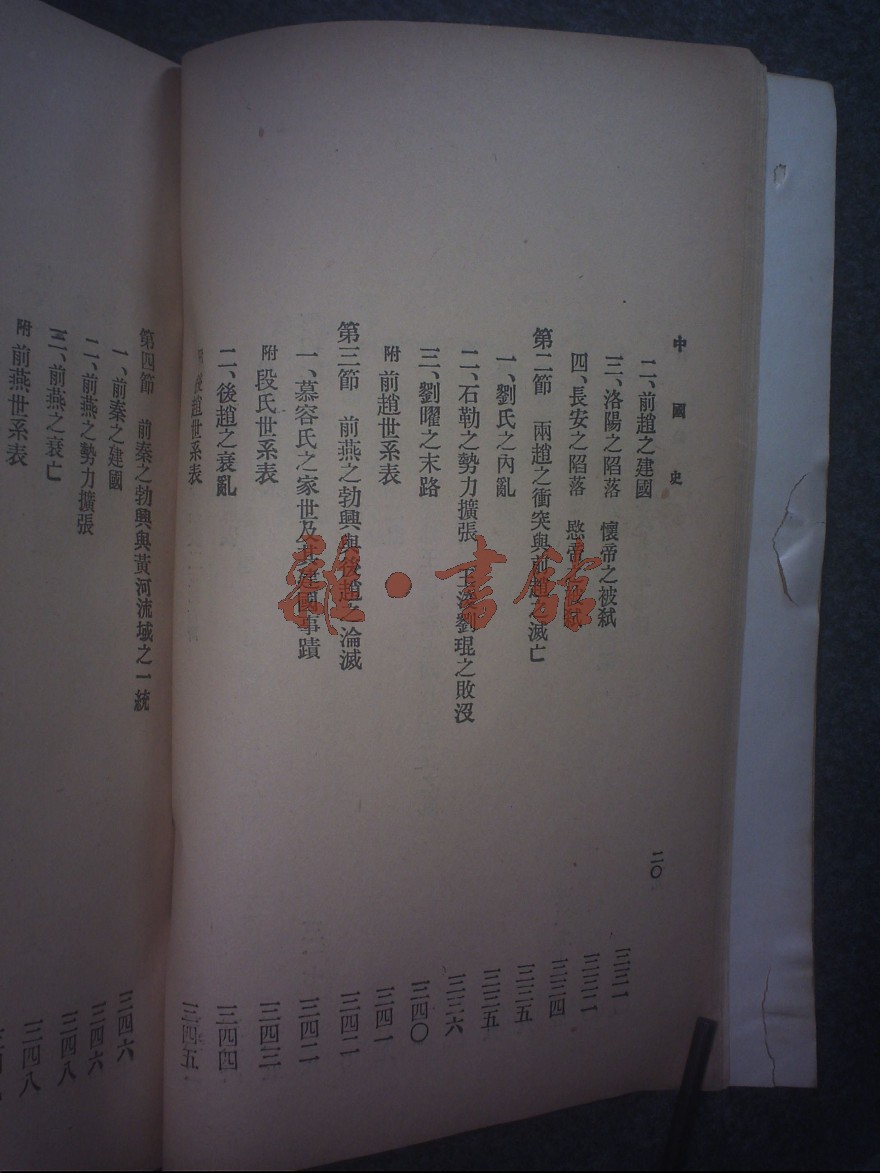 中國史
二〇
二、前趙之建國 三三一
三、洛陽之陷落 懷帝之被弑 三三二
四、長安之陷落 愍帝之被弑 三三四
第二節 兩趙之衝突與前趙之滅亡 三三五
一、劉氏之內亂 三三五
二、石勒之勢力擴張 王浚劉琨之敗沒 三三六
三、劉曜之末路 三四〇
附 前趙世系表 三四一
第三節 前燕之勃興與後趙之淪滅 三四二
一、慕容氏之家世及其建國事蹟 三四二
附 段氏世系表 三四三
二、後趙之衰亂 三四四
附 後趙世系表 三四五
第四節 前秦之勃興與黃河流域之一統 三四六
一、前秦之建國 三四六
二、前燕之勢力擴張 三四八
三、前燕之衰亡 三四八
附 前燕世系表
雜·書館